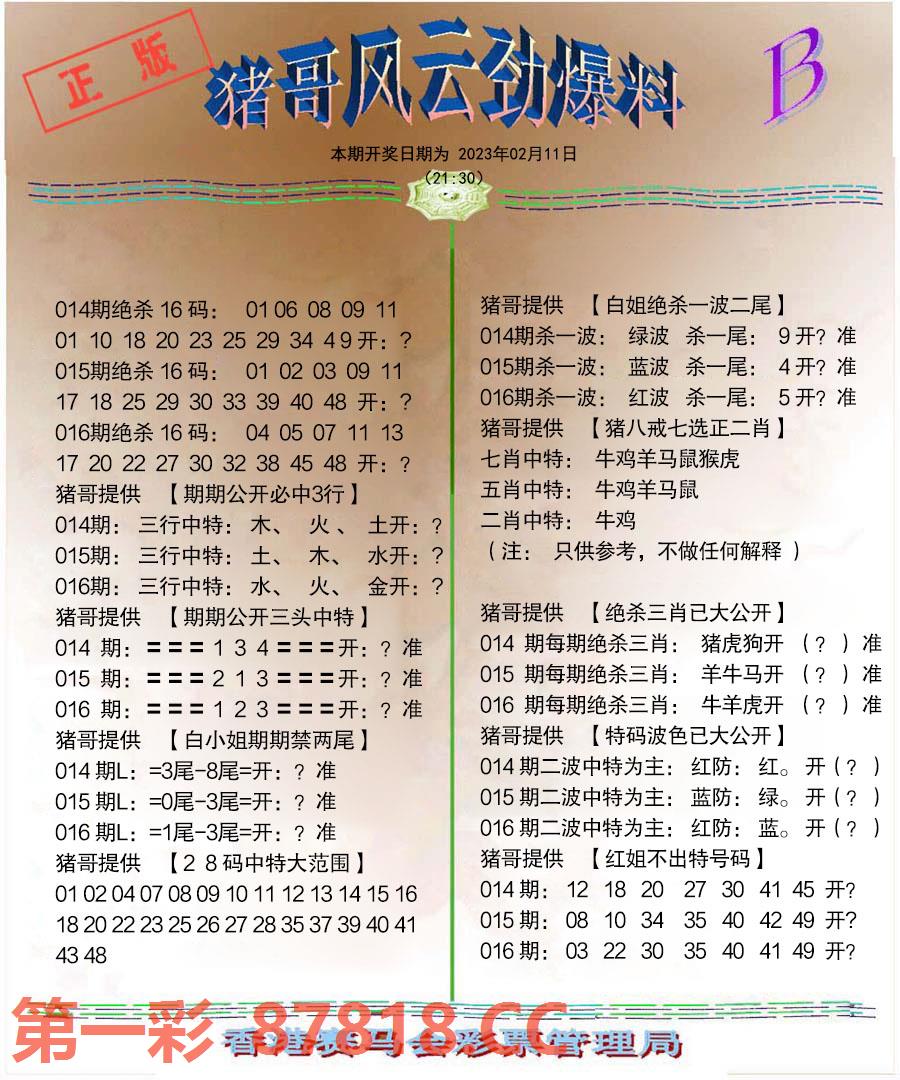 正版
猪哥风云劲爆料
B
本期开奖日期为 2023年02月11日
（21:30）
014期绝杀 16 码： 01 06 08 09 11
01 10 18 20 23 25 29 34 4 9 开：?
015期绝杀 16 码： 01 02 03 09 11
17 18 25 29 30 33 39 40 48 开：?
016期绝杀 16 码： 04 05 07 11 13
17 20 22 27 30 32 38 45 48 开：?
猪哥提供 【期期公开必中3行】
014期： 三行中特： 木、 火 、 土开：?
015期： 三行中特： 土、 木、 水开：?
016期： 三行中特： 水、 火、 金开：?
猪哥提供 【期期公开三头中特】
014 期：＝＝＝1 3 4＝＝＝开：? 准
015 期：＝＝＝2 1 3＝＝＝开：? 准
016 期：＝＝＝1 2 3＝＝＝开：? 准
猪哥提供 【白小姐期期禁两尾】
014 期L：=3尾-8尾=开：? 准
015 期L：=0尾-3尾=开：? 准
016 期L：=1尾-3尾=开：? 准
猪哥提供 【2 8 码中特大范围】
01 02 04 07 08 09 10 11 12 13 14 15 16
18 20 22 23 25 26 27 28 35 37 39 40 41
43 48
猪哥提供 【白姐绝杀一波二尾】
014期杀一波： 绿波 杀一尾： 9 开? 准
015期杀一波： 蓝波 杀一尾： 4 开? 准
016期杀一波： 红波 杀一尾： 5 开? 准
猪哥提供 【猪八戒七选正二肖】
七肖中特： 牛鸡羊马鼠猴虎
五肖中特： 牛鸡羊马鼠
二肖中特： 牛鸡
（注： 只供参考，不做任何解释 ）
猪哥提供 【绝杀三肖已大公开】
014 期每期绝杀三肖： 猪虎狗开 （? ）准
015 期每期绝杀三肖： 羊牛马开 （? ）准
016 期每期绝杀三肖： 牛羊虎开 （? ）准
猪哥提供 【特码波色已大公开】
014 期二波中特为主： 红防： 红。 开（? ）
015 期二波中特为主： 蓝防： 绿。 开（? ）
016 期二波中特为主： 红防： 蓝。 开（? ）
猪哥提供 【红姐不出特号码】
014 期： 12 18 20 27 30 41 45 开?
015 期： 08 10 34 35 40 42 49 开?
016 期： 03 22 30 35 40 41 49 开?
第一彩 87818.CC
香港赛马会彩票管理局